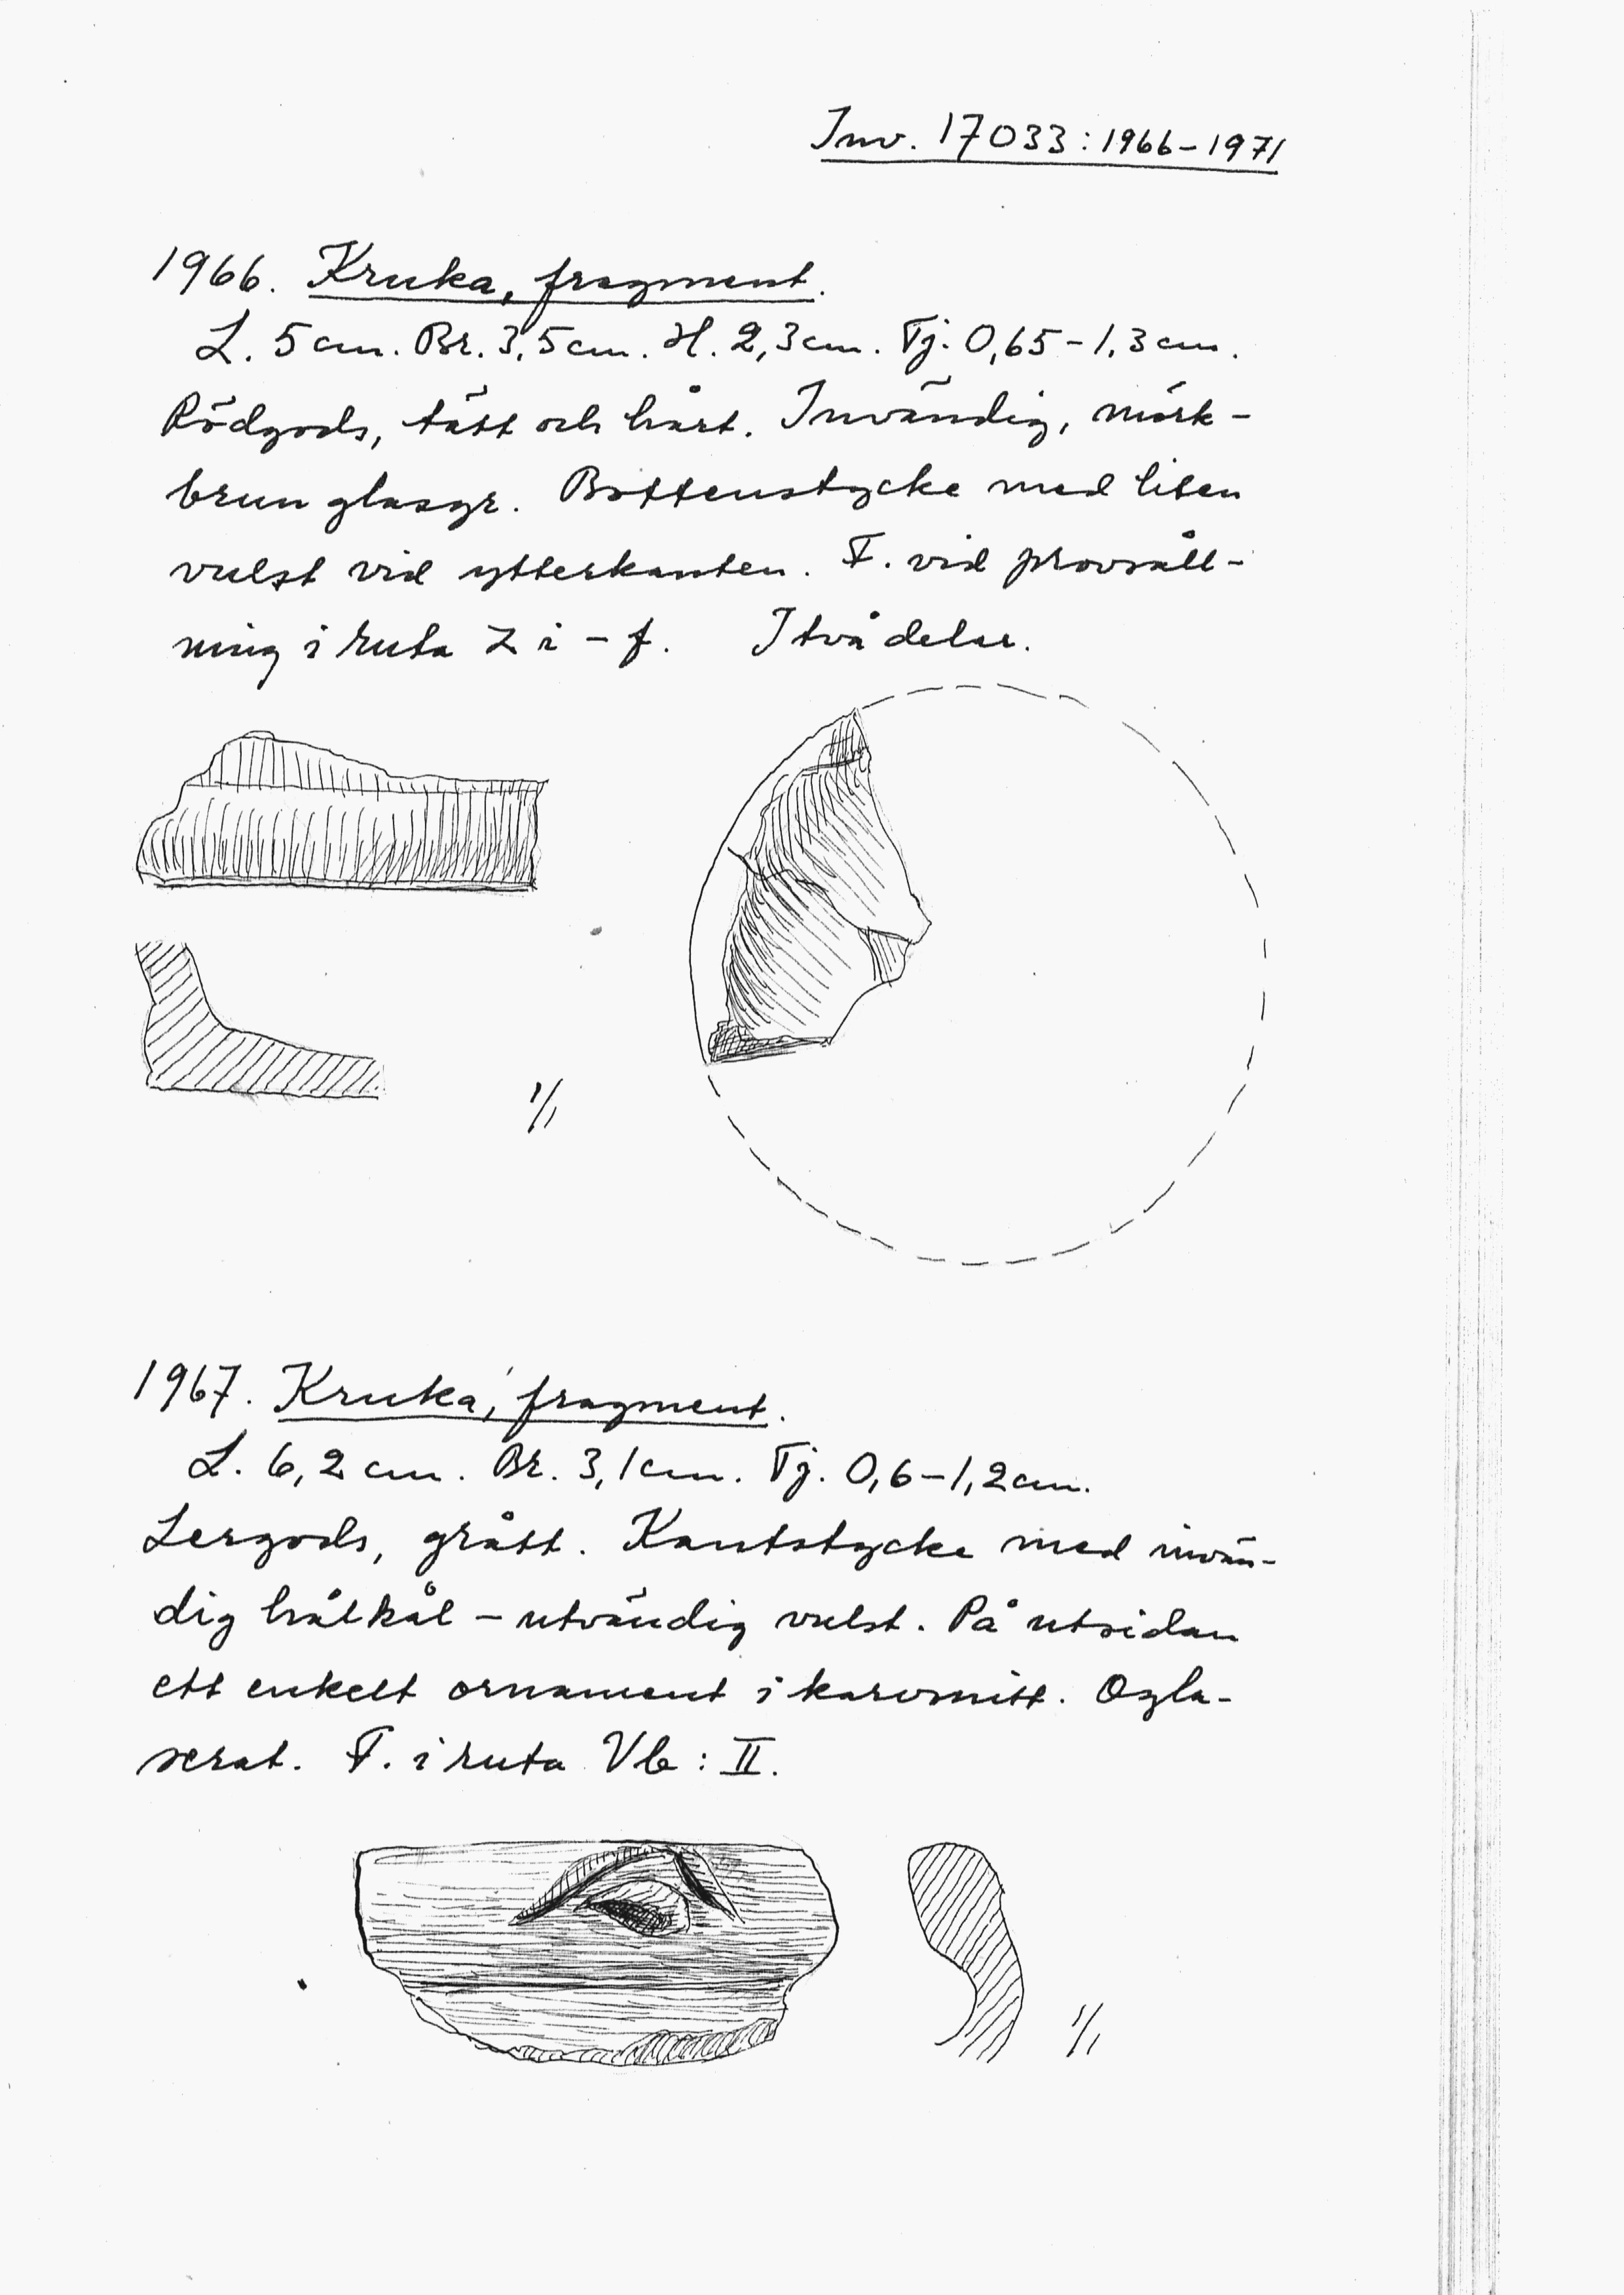 Inv. 17033:1966-1971
1966. Kruka, fragment.
L. 5 cm. Br. 3,5 cm. H. 2,3 cm. Tj. 0,65-1,3 cm.
Rödgods, tätt och hårt. Invändig, mörk-
brun glasyr. Bottenstycke med liten
vulst vid ytterkanten. F. vid provsåll-
ning i ruta Z i - f. I två delar.
1/1
1967. Kruka, fragment.
L. 6,2 cm. Br. 3,1 cm. Tj. 0,6-1,2 cm.
Lergods, grått. Kantstycke med invän-
dig hålkål - utvändig vulst. På utsidan
ett enkelt ornament i karvsnitt. Ogla-
serat. F. i ruta Vb : II.
1/1